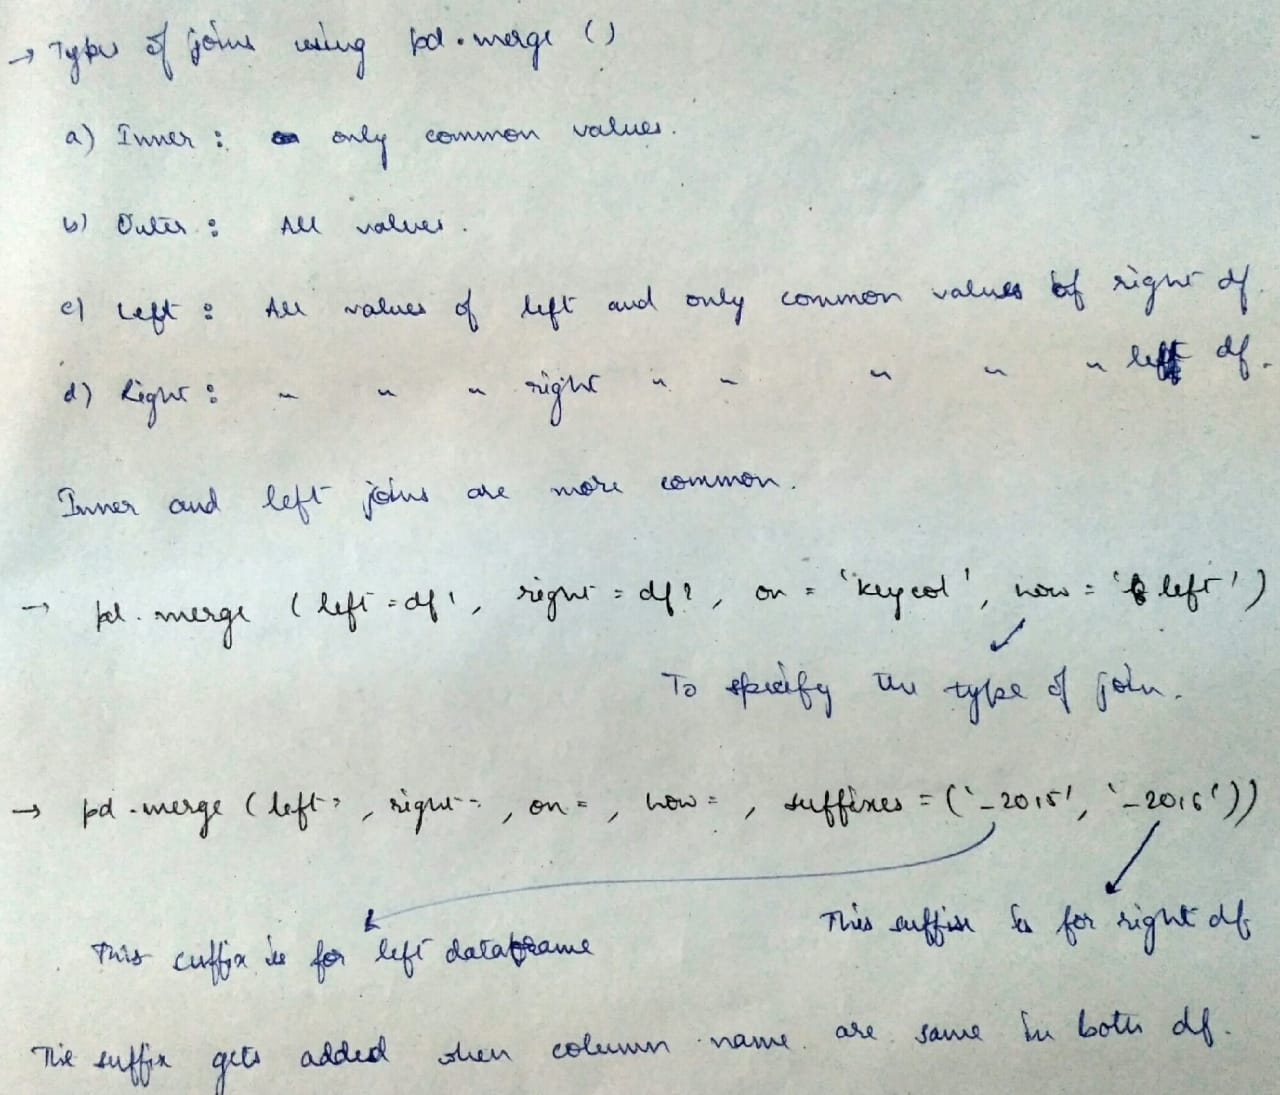 → Types of joins using pd.merge ()
a) Inner : only common values.
b) Outer : All values.
c) Left : All values of left and only common values of right df.
d) Right : " " " right " " " " " left df.
Inner and left joins are more common.
→ pd.merge (left = df1, right = df2, on = 'key col', how = 'left')
To specify the type of join.
→ pd.merge (left= , right= , on = , how = , suffixes = ('_2015', '_2016'))
This suffix is for right df
This suffix is for left dataframe
The suffix gets added when column name are same in both df.